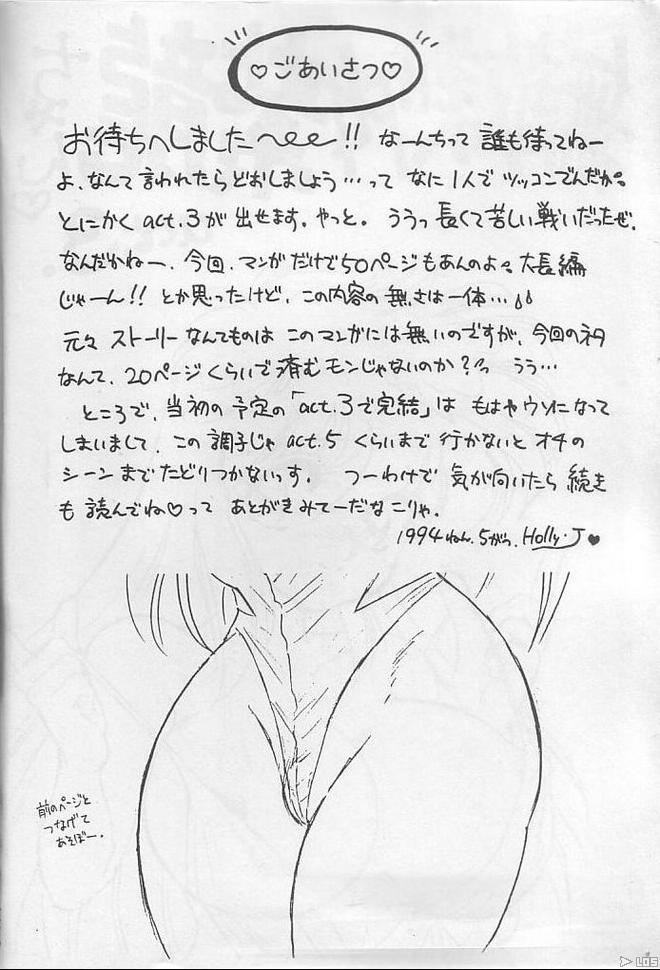 ♡ごあいさつ♡
お待ちへしました〜ee!! なーんちって 誰も待ってねー
よ、なんて言われたらどおしましょう…って なに1人で ツッコンでんだか。
とにかく act.3が 出せます。やっと。 ううっ 長くて苦しい戦いだったぜ。
なんだかねー、今回、マンガだけで50ページもあんのよ。大長編
じゃーん!! とか思ったけど、この内容の 無さは一体…
元々 ストーリーなんてものは このマンガには無いのですが、今回のネタ
なんて、20ページくらいで済むモンじゃないのか?っ うう…
ところで、当初の 予定の「act.3で完結」は もはやウソになって
しまいまして、この調子じゃ act.5 くらいまで 行かないと オチの
シーンまでたどりつかないっす。 つーわけで 気が向いたら 続き
も 読んでね♡って あとがきみてーだな こりゃ。
1994ねん.5がつ. Holly・J♥
前のページと
つなげて
あそぼー.
LDS